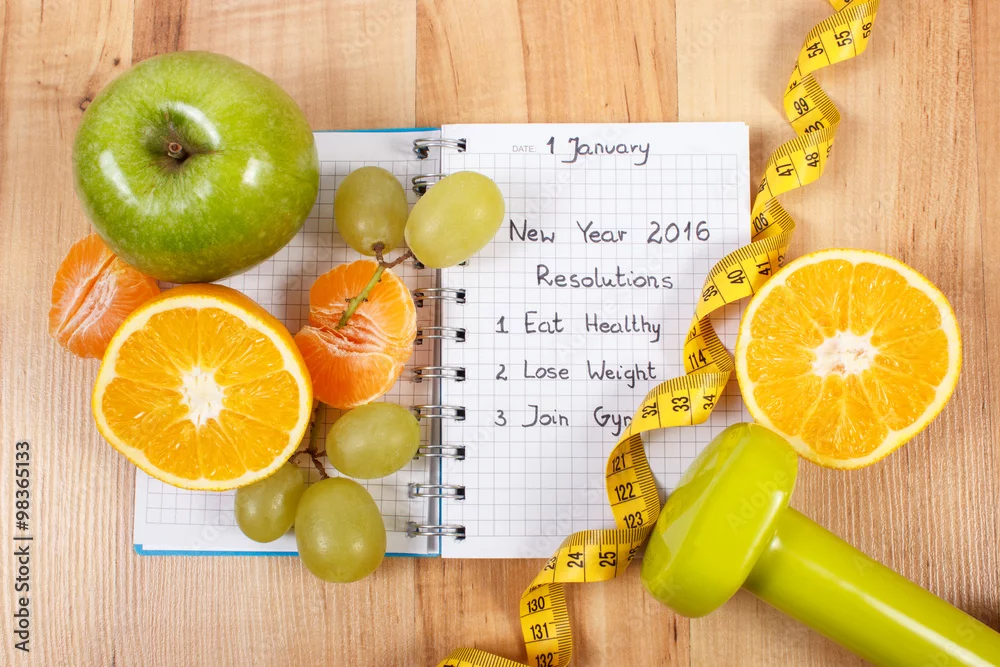 DATE: 1 January
New Year 2016
Resolutions
1 Eat Healthy
2 Lose Weight
3 Join
54 55 56
99
48
47
106
40
39
114
34
33
32
121
122
123
25
24
130
131
132
Adobe Stock | #98365133